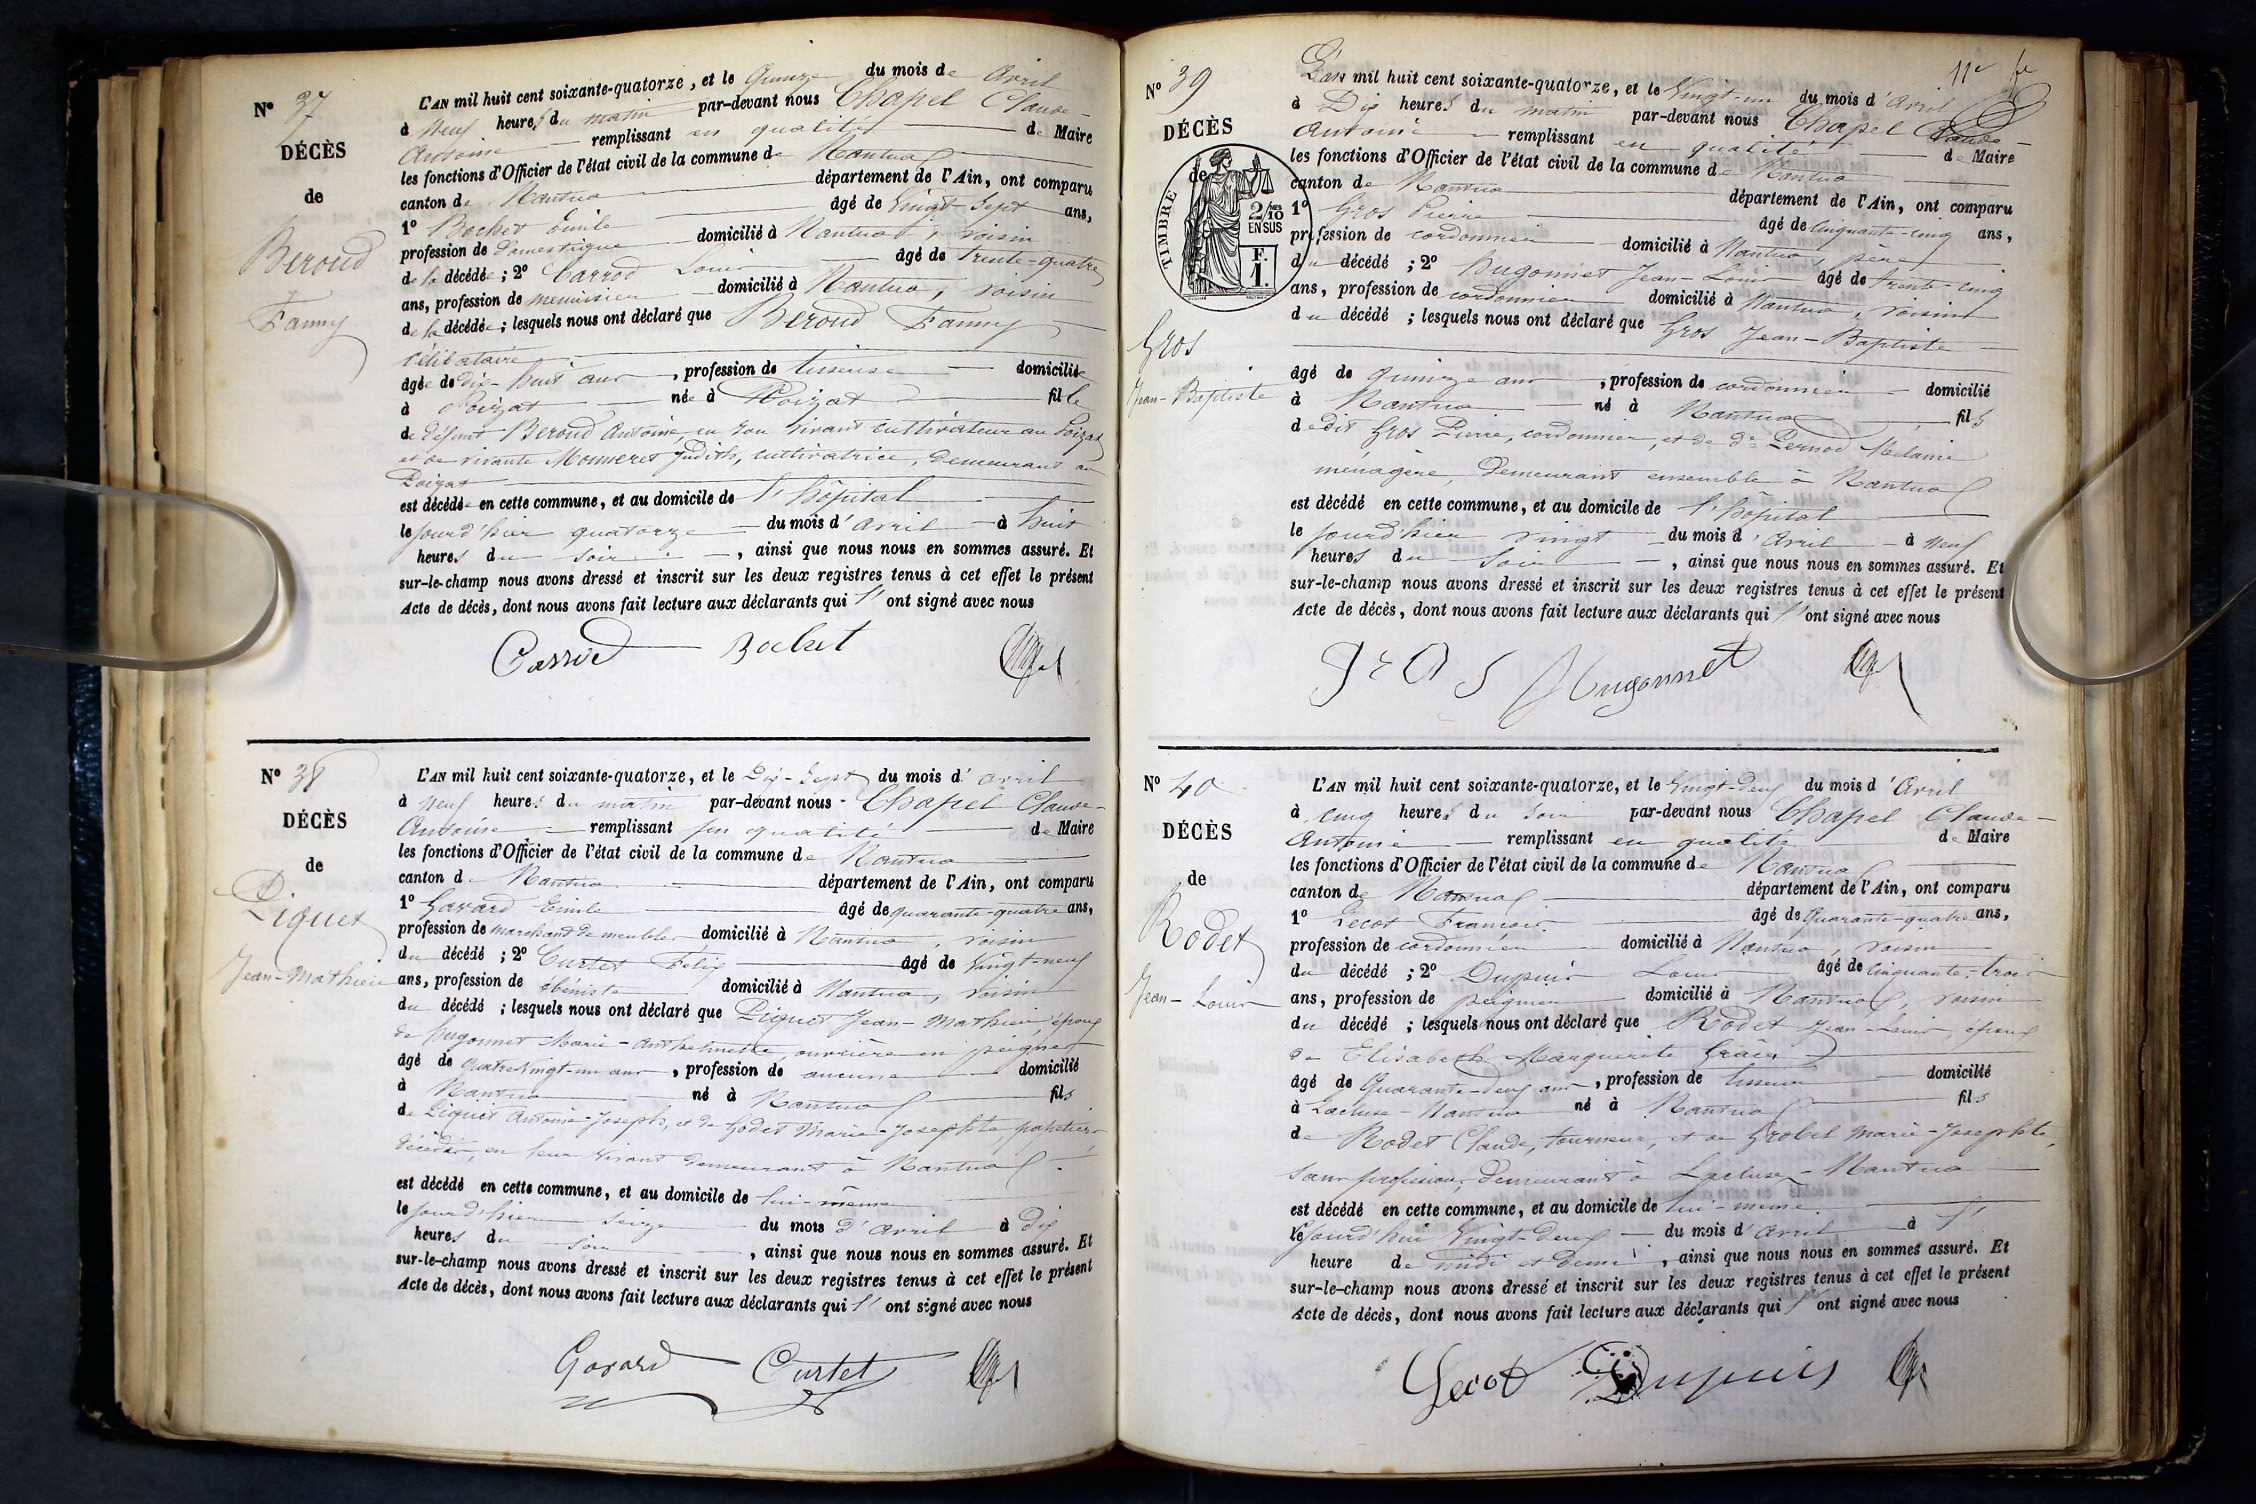 N° 37
DÉCÈS
de
Beroud
Fanny
L'AN mil huit cent soixante-quatorze, et le Quinze du mois de Avril
à Neuf heures du matin par-devant nous Chapel Claude-
Antoine remplissant en qualité de Maire
les fonctions d'Officier de l'état civil de la commune de Nantua
canton de Nantua département de l'Ain, ont comparu
1° Bochet Emile âgé de Vingt-Sept ans,
profession de Domestique domicilié à Nantua, voisin
de la décédée ; 2° Carrod Louis âgé de Trente-quatre
ans, profession de menuisier domicilié à Nantua, voisin
de la décédée ; lesquels nous ont déclaré que Beroud Fanny
célibataire
âgée de dix-huit ans, profession de tisseuse domiciliée
à Poizat née à Poizat fille
de défunt Beroud Antoine, en son vivant cultivateur au Poizat
et de vivante Monneret Judith, cultivatrice, demeurant au
Poizat
est décédée en cette commune, et au domicile de l'hôpital
le jourd'hier quatorze du mois d'avril à huit
heures du soir, ainsi que nous nous en sommes assuré. Et
sur-le-champ nous avons dressé et inscrit sur les deux registres tenus à cet effet le présent
Acte de décès, dont nous avons fait lecture aux déclarants qui l'ont signé avec nous
Carrod Bochet
N° 38
DÉCÈS
de
Piquet
Jean-Mathieu
L'AN mil huit cent soixante-quatorze, et le Dix-Sept du mois d'avril
à Neuf heures du matin par-devant nous Chapel Claude-
Antoine remplissant en qualité de Maire
les fonctions d'Officier de l'état civil de la commune de Nantua
canton de Nantua département de l'Ain, ont comparu
1° Gavard Emile âgé de quarante-quatre ans,
profession de marchand de meubles domicilié à Nantua, voisin
du décédé ; 2° Curtet Félix âgé de Vingt-neuf
ans, profession de ébéniste domicilié à Nantua, voisin
du décédé ; lesquels nous ont déclaré que Piquet Jean-Mathieu, époux
de hugonnet Marie-Anthelmette, ouvrière en peignes
âgé de quatrevingt-un ans, profession de aucune domicilié
à Nantua né à Nantua fils
de Piquet Antoine-Joseph, et de Godet Marie-Josephte,
décédés, en leur vivant demeurant à Nantua
est décédé en cette commune, et au domicile de lui-même
le jourd'hier seize du mois d'avril à dix
heures du soir, ainsi que nous nous en sommes assuré. Et
sur-le-champ nous avons dressé et inscrit sur les deux registres tenus à cet effet le présent
Acte de décès, dont nous avons fait lecture aux déclarants qui l'ont signé avec nous
Gavard Curtet
11e
N° 39
DÉCÈS
de
TIMBRE
2/10 EN SUS
F. 1.
Gros
Jean-Baptiste
L'AN mil huit cent soixante-quatorze, et le Vingt-un du mois d'Avril
à Dix heures du matin par-devant nous Chapel Claude-
Antoine remplissant en qualité de Maire
les fonctions d'Officier de l'état civil de la commune de Nantua
canton de Nantua département de l'Ain, ont comparu
1° Gros Pierre âgé de Cinquante-cinq ans,
profession de cordonnier domicilié à Nantua, père
du décédé ; 2° hugonnet Jean-Louis âgé de trente-cinq
ans, profession de cordonnier domicilié à Nantua, voisin
du décédé ; lesquels nous ont déclaré que Gros Jean-Baptiste
âgé de quinze ans, profession de cordonnier domicilié
à Nantua né à Nantua fils
de dit Gros Pierre, cordonnier, et de de Pernod Melanie
ménagère, demeurant ensemble à Nantua
est décédé en cette commune, et au domicile de l'hôpital
le jourd'hier vingt du mois d'Avril à neuf
heures du soir, ainsi que nous nous en sommes assuré. Et
sur-le-champ nous avons dressé et inscrit sur les deux registres tenus à cet effet le présent
Acte de décès, dont nous avons fait lecture aux déclarants qui l'ont signé avec nous
gros Hugonnet
N° 40
DÉCÈS
de
Rodet
Jean-Louis
L'AN mil huit cent soixante-quatorze, et le Vingt-deux du mois d'Avril
à cinq heures du soir par-devant nous Chapel Claude-
Antoine remplissant en qualité de Maire
les fonctions d'Officier de l'état civil de la commune de Nantua
canton de Nantua département de l'Ain, ont comparu
1° Lecot François âgé de Quarante-quatre ans,
profession de cordonnier domicilié à Nantua, voisin
du décédé ; 2° Dupuis Louis âgé de Cinquante-trois
ans, profession de peignier domicilié à Nantua, voisin
du décédé ; lesquels nous ont déclaré que Rodet Jean-Louis, époux
de Elisabeth Marguerite
âgé de Quarante-deux ans, profession de tisseur domicilié
à Lacluse-Nantua né à Nantua fils
de Rodet Claude, tourneur, et de Grobel Marie-Josephte,
sans profession, demeurant à Lacluse-Nantua
est décédé en cette commune, et au domicile de lui-même
le jourd'hui Vingt-deux du mois d'Avril à l'
heure de midi et demi, ainsi que nous nous en sommes assuré. Et
sur-le-champ nous avons dressé et inscrit sur les deux registres tenus à cet effet le présent
Acte de décès, dont nous avons fait lecture aux déclarants qui l'ont signé avec nous
Lecot Dupuis